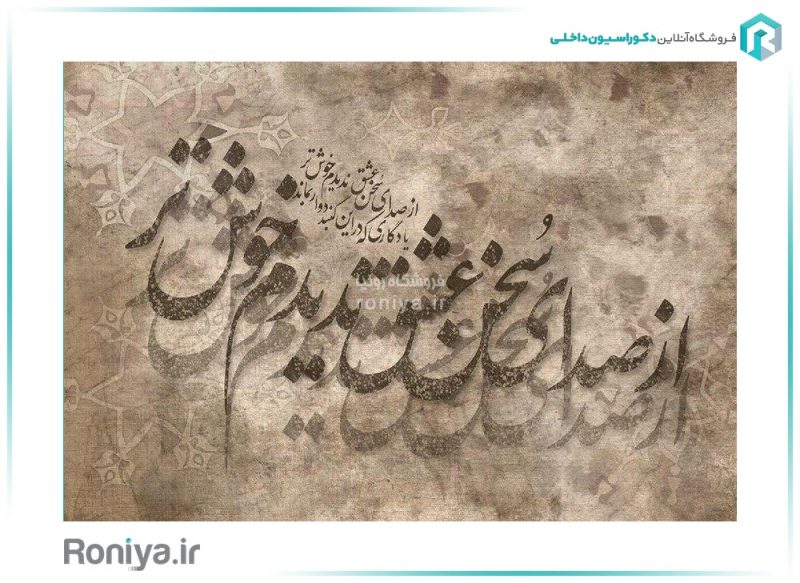 فروشگاه آنلاین دکوراسیون داخلی
از صدای سُخن عشق ندیدم خوش تر
یادگاری که در این گنبد دوار بماند
از صدای سُخن عشق ندیدم خوش تر
فروشگاه رونیا
roniya.ir
Roniya.ir